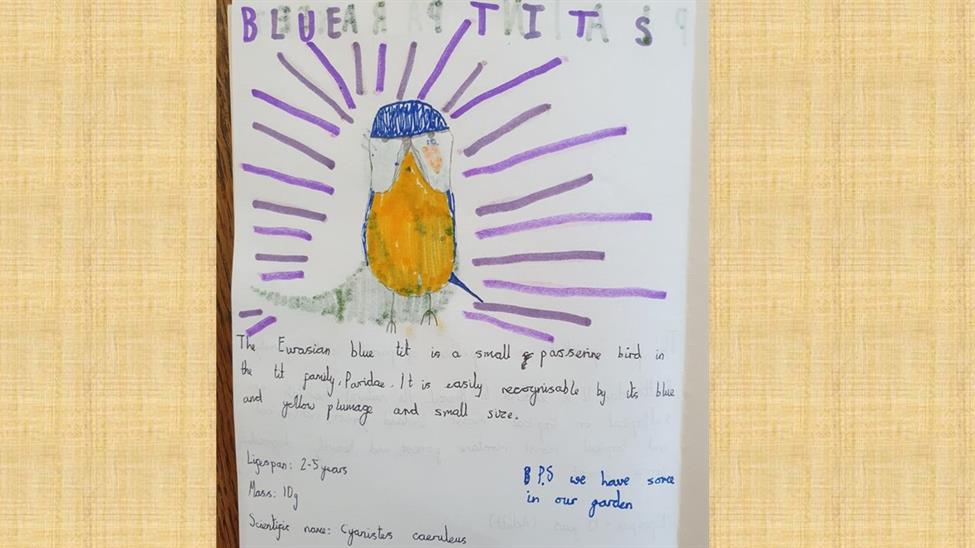 BLUE TITS
The Eurasian blue tit is a small passerine bird in
the tit family, Paridae. It is easily recognisable by its blue
and yellow plumage and small size.
Lifespan: 2-5 years
Mass: 10g
Scientific name: Cyanistes caeruleus
P.S we have some
in our garden